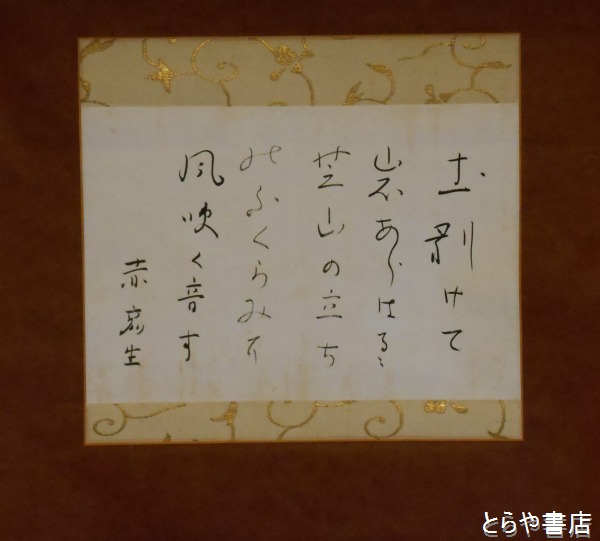 土剥けて
岩あらはるゝ
芝山の立ち
ふくらみ尓
風吹く音す
赤彦生
とらや書店